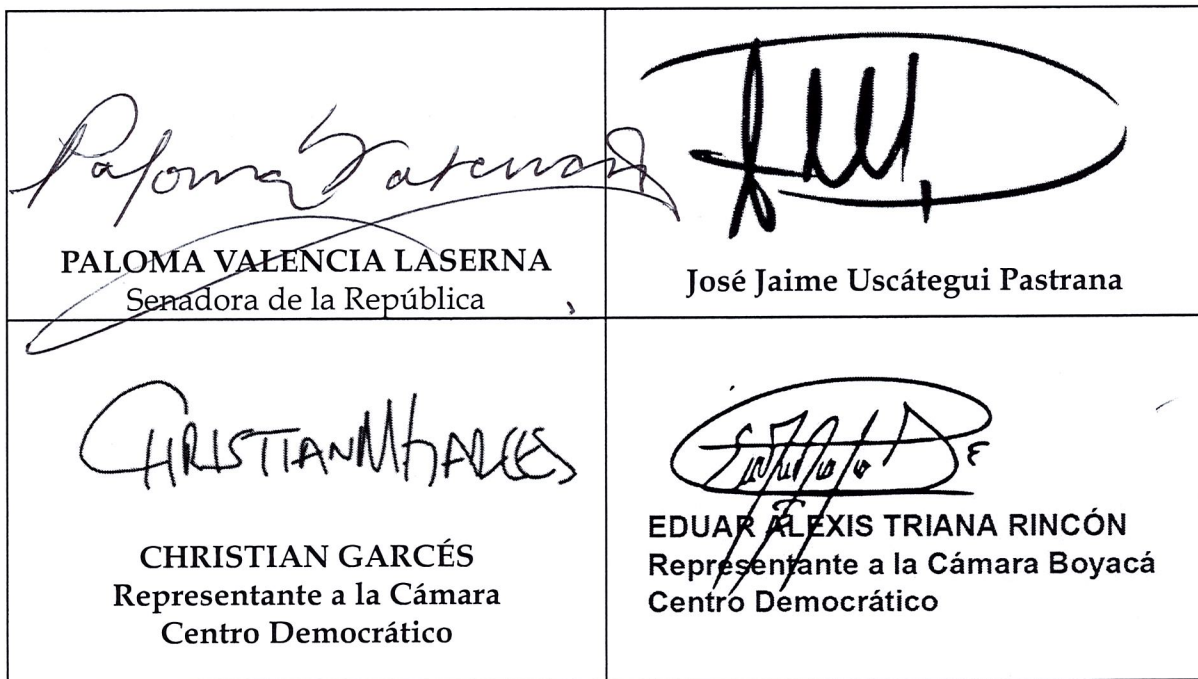 Paloma Valencia
PALOMA VALENCIA LASERNA
Senadora de la República
José Jaime Uscátegui Pastrana
CHRISTIAN M GARCES
CHRISTIAN GARCÉS
Representante a la Cámara
Centro Democrático
EDUAR ALEXIS TRIANA RINCÓN
Representante a la Cámara Boyacá
Centro Democrático